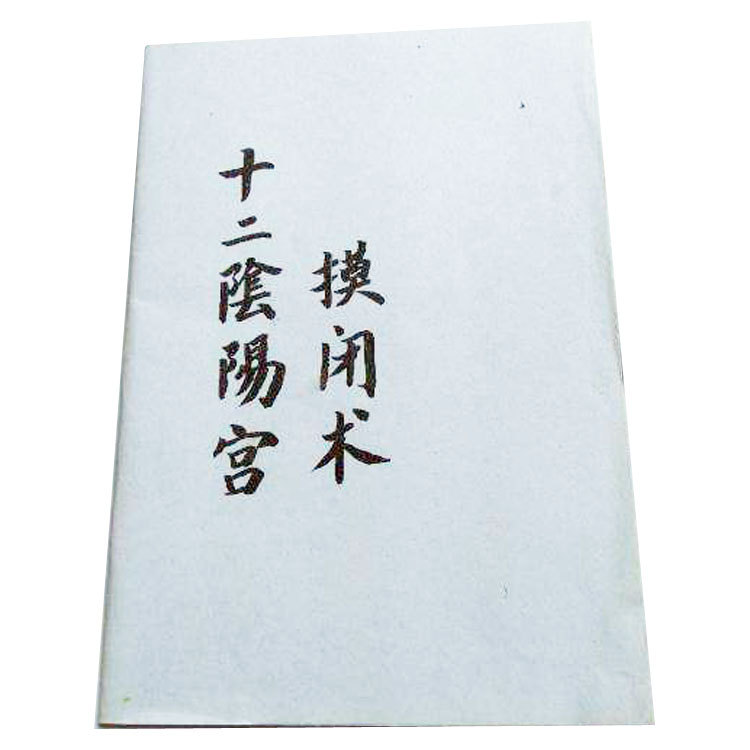 十二陰陽宫
摸闭术